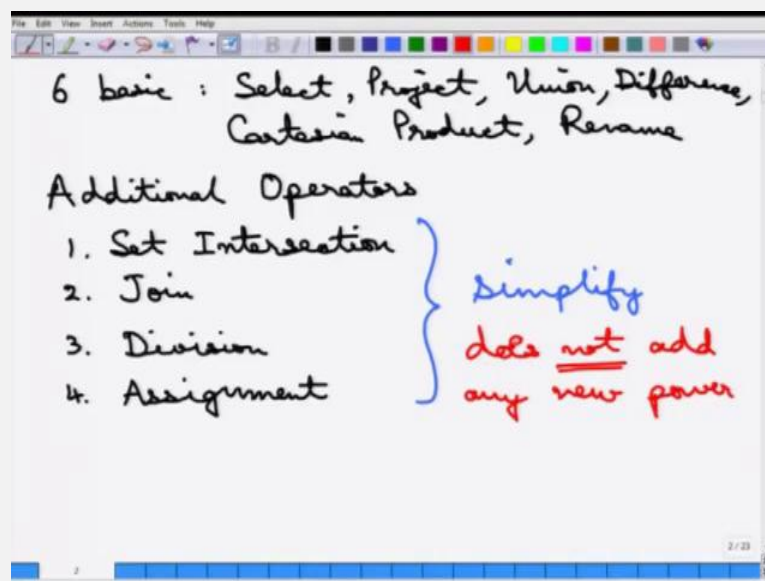 File Edit View Insert Actions Tools Help
6 basic : Select, Project, Union, Difference,
Cartesian Product, Rename
Additional Operators
1. Set Intersection
2. Join
3. Division
4. Assignment
simplify
does not add
any new power
2/23
2